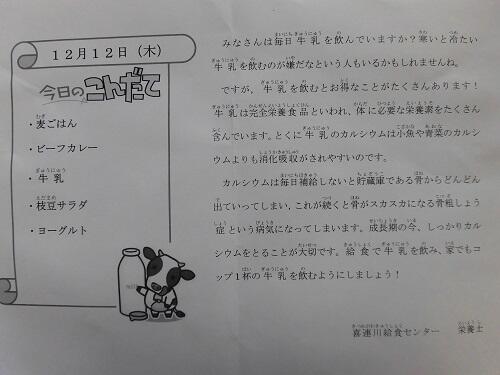 12月12日(木)
今日のこんだて
・麦ごはん
・ビーフカレー
・牛乳
・枝豆サラダ
・ヨーグルト
みなさんは毎日牛乳を飲んでいますか?寒いと冷たい
牛乳を飲むのが嫌だなという人もいるかもしれませんね。
ですが、牛乳を飲むとお得なことがたくさんあります!
牛乳は完全栄養食品といわれ、体に必要な栄養素をたくさん
含んでいます。とくに牛乳のカルシウムは小魚や青菜のカルシ
ウムよりも消化吸収がされやすいのです。
カルシウムは毎日補給しないと貯蔵庫である骨からどんどん
出ていってしまい、これが続くと骨がスカスカになる骨粗しょう
症という病気になってしまいます。成長期の今、しっかりカル
シウムをとることが大切です。給食で牛乳を飲み、家でもコ
ップ1杯の牛乳を飲むようにしましょう!
喜連川給食センター 栄養士